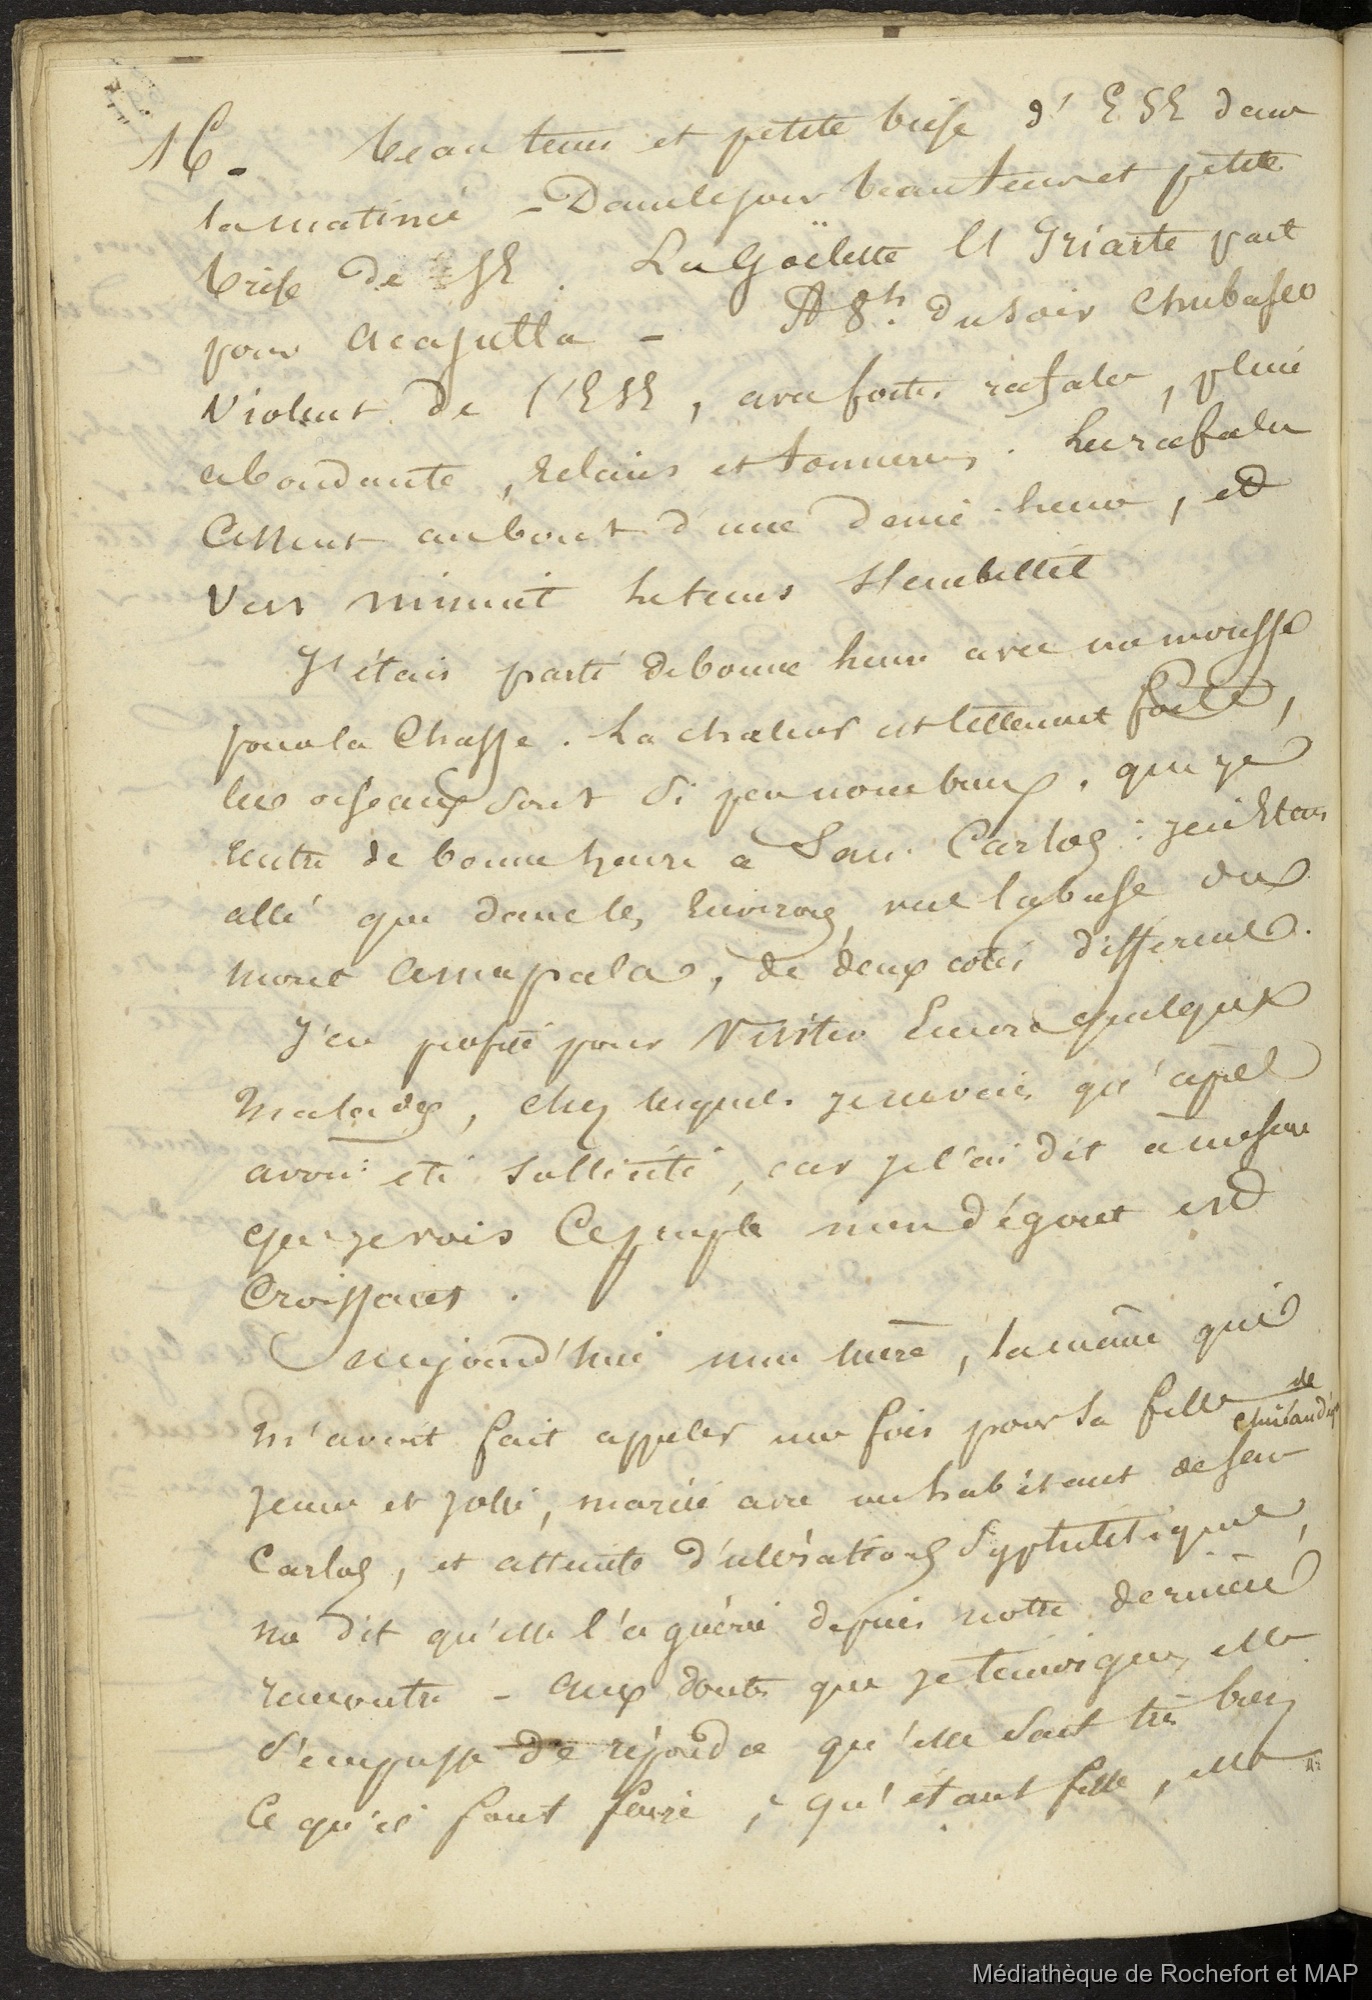 16. beau tems et petite brise d'ESE dans
la matinée - Dans le jour beau tems et petite
brise de SE. La Goëlette U Griarte part
pour Acapulla - A 8h. du soir Chubasco
Violent de l'ESE, avec fortes rafales, pluie
abondante, Eclairs et tonnerres. Les rafales
Cessent au bout d'une demie heure, et
Vers minuit le tems s'embellit
J'étais parti de bonne heure avec un mousse
pour la Chasse. La chaleur est tellement forte,
les oiseaux sont si peu nombreux, que je
rentre de bonne heure à San Carlos: je n'étais
allé que dans les Environs, vers la base du
mont Amapala, de deux cotés différents.
J'en profite pour Visiter Encore quelques
Malades, chez lesquels je ne vais qu'après
avoir été sollicité, car je l'ai dit à mesure
que je vois Ce peuple mon dégout est
Croissant.
Aujourd'hui une mère, la même qui
m'avait fait appeler une fois pour sa fille de
jeune et jolie, mariée avec un habitant de San
Carlos, et atteinte d'ulcérations Syphilitiques,
me dit qu'elle l'a guérie depuis notre dernière
rencontre - Aux doutes que je témoigne, elle
s'empresse de répondre qu'elle sait très bien
Ce qu'il faut faire, qu'étant fille, elle
Médiathèque de Rochefort et MAP